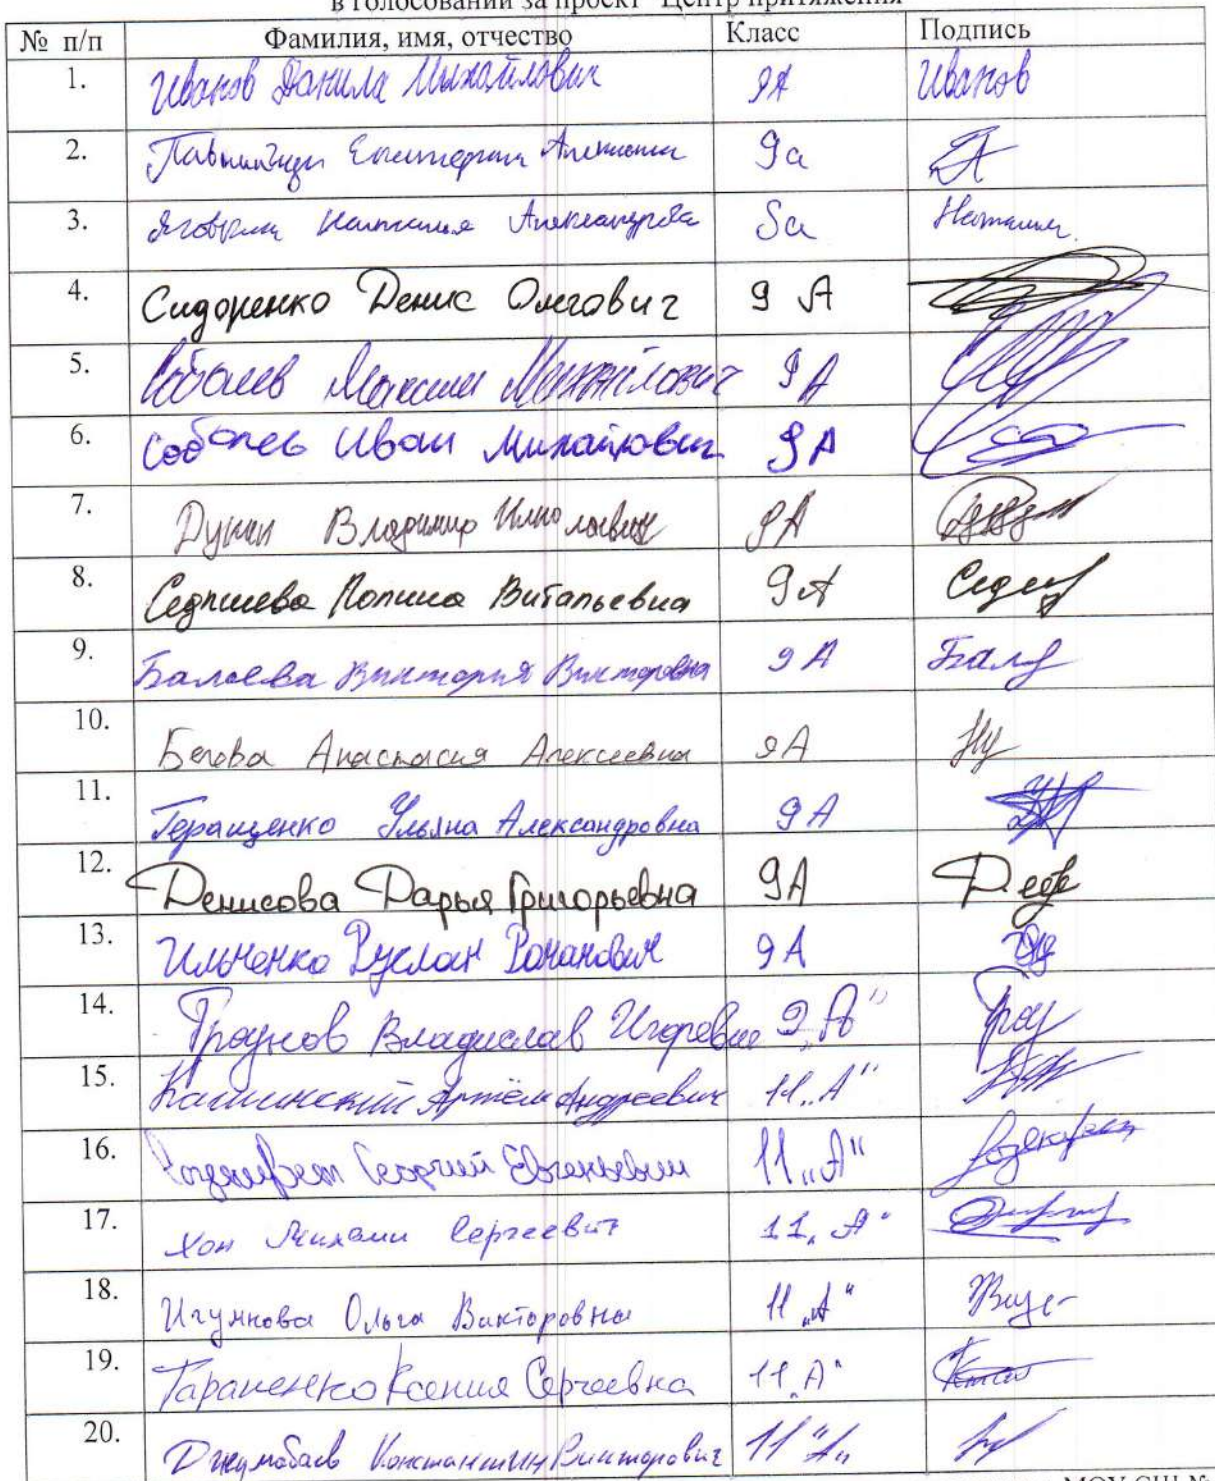 в голосовании за проект "Центр притяжения"
№ п/п Фамилия, имя, отчество Класс Подпись
1. Иванов Данила Михайлович 9А Иванов
2. Екатерина 9а
3. Наталья Александровна 5а Наталья
4. Сидоренко Денис Олегович 9 А
5. Соболев Максим Михайлович 9 А
6. Соболев Иван Михайлович 9А
7. Владимир Николаевич 9А
8. Полина Витальевна 9А
9. Балаева Виктория Викторовна 9 А
10. Белова Анастасия Алексеевна 9А
11. Геращенко Ульяна Александровна 9А
12. Денисова Дарья Григорьевна 9А
13. Ильченко Руслан Романович 9А
14. Владислав Игоревич 9„А"
15. Артём Андреевич 11„А"
16. Георгий Евгеньевич 11„А"
17. Хон Михаил Сергеевич 11„А"
18. Игумнова Ольга Викторовна 11„А"
19. Тараненко Ксения Сергеевна 11„А"
20. Джумабаев Константин Викторович 11"А„